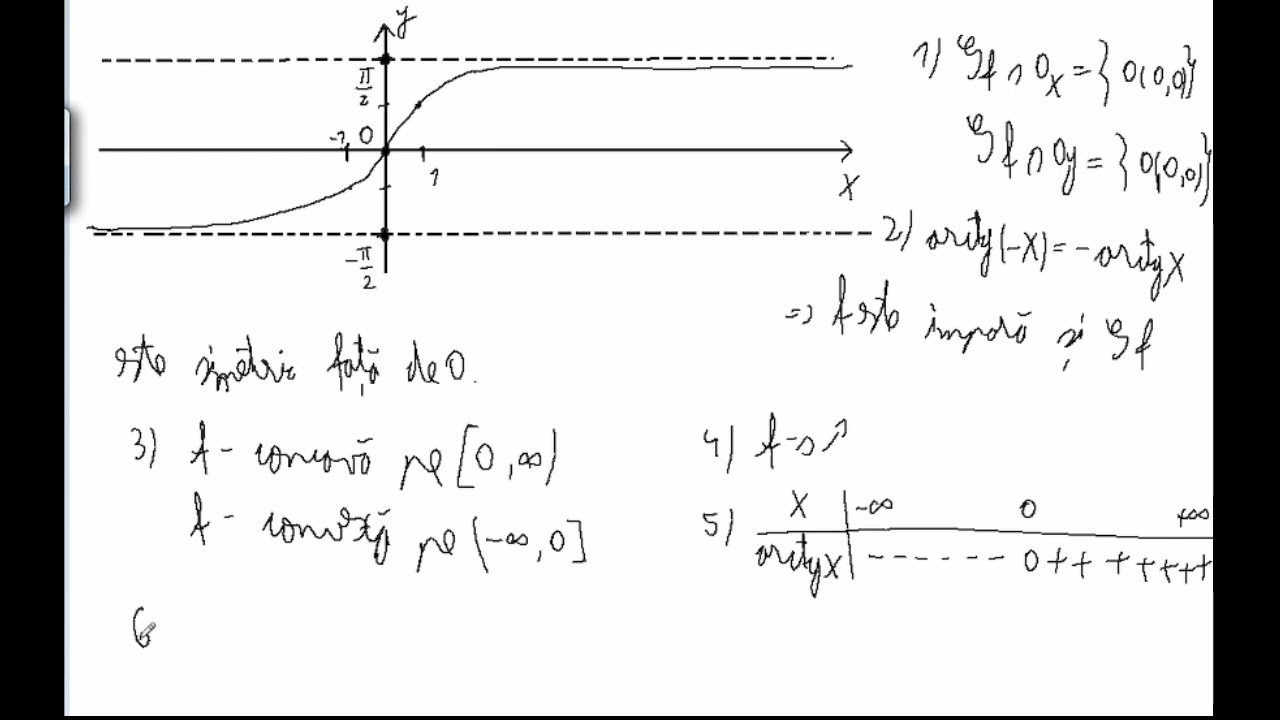 y
π/2
-1 0
1
x
-π/2
1) Gf ∩ Ox = {O(0,0)}
Gf ∩ Oy = {O(0,0)}
2) arctg(-x) = -arctg x
=> f este impară și Gf
este simetric față de O.
3) f - concavă pe [0, ∞)
f - convexă pe (-∞, 0]
4) f - s ↗
5) x | -∞ 0 +∞
arctg x | - - - - - - - 0 + + + + + + +
6